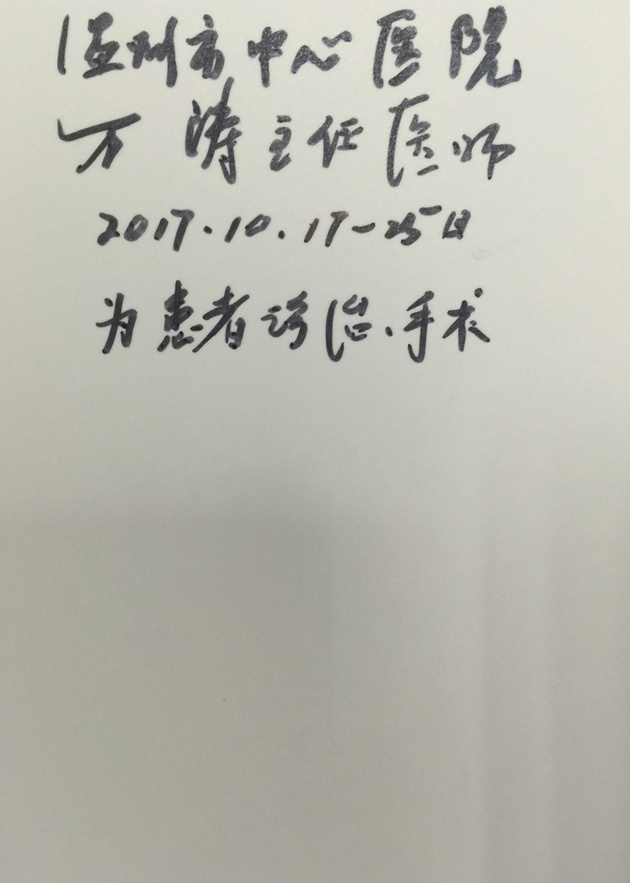 温州市中心医院
万涛主任医师
2017.10.17-25日
为患者诊治、手术